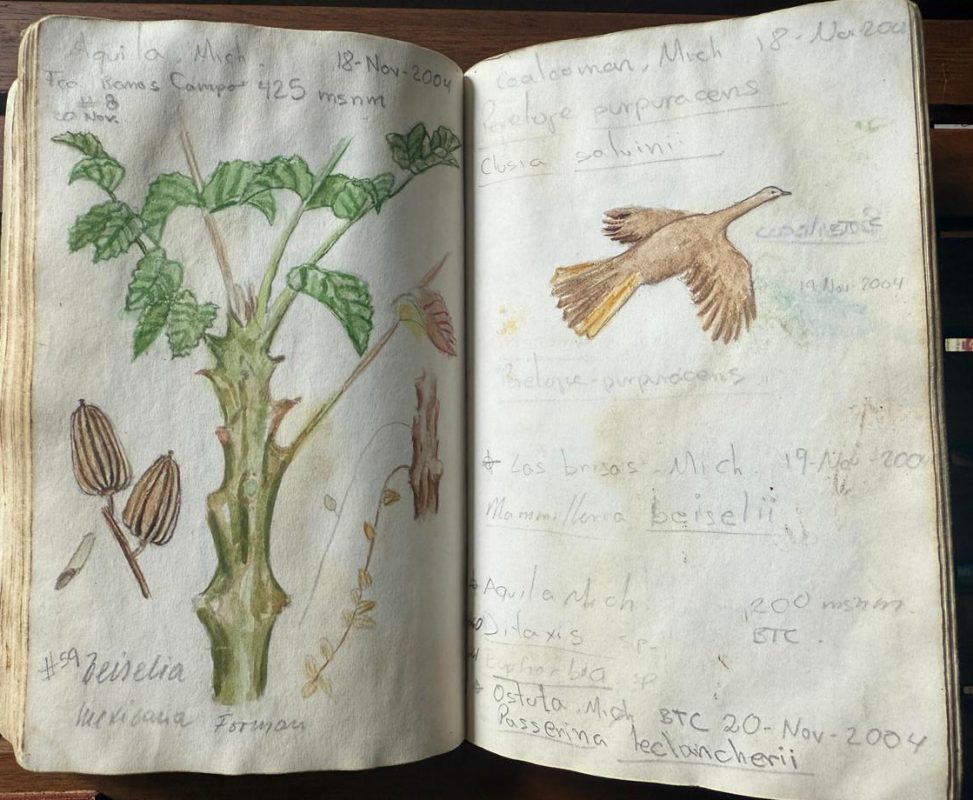 Aquila, Mich 18-Nov-2004
Fco. Ramos Campo 425 msnm
#8
20 Nov.
#59 Beiselia
mexicana Forman
Coalcoman, Mich 18-Nov 200
Penelope purpuracens
Clusia salvinii
19 Nov 2004
Penelope purpuracens
Las brisas, Mich. 19-Nov-2004
Mammillaria beiselii
Aquila Mich. 200 msnm.
Ditaxis sp. BTC.
Euphorbia sp
Ostuta, Mich BTC 20-Nov-2004
Passerina leclancherii